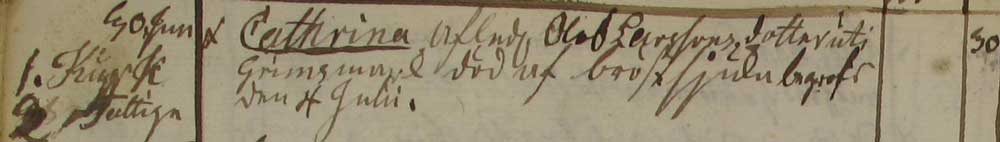 30 Juni
1. Kyrk
Fattige
+ Cathrina afled. Olof Larssons dotter uti
Grimsmark död af bröstsjuka begrofs
den 4 Julii.
30